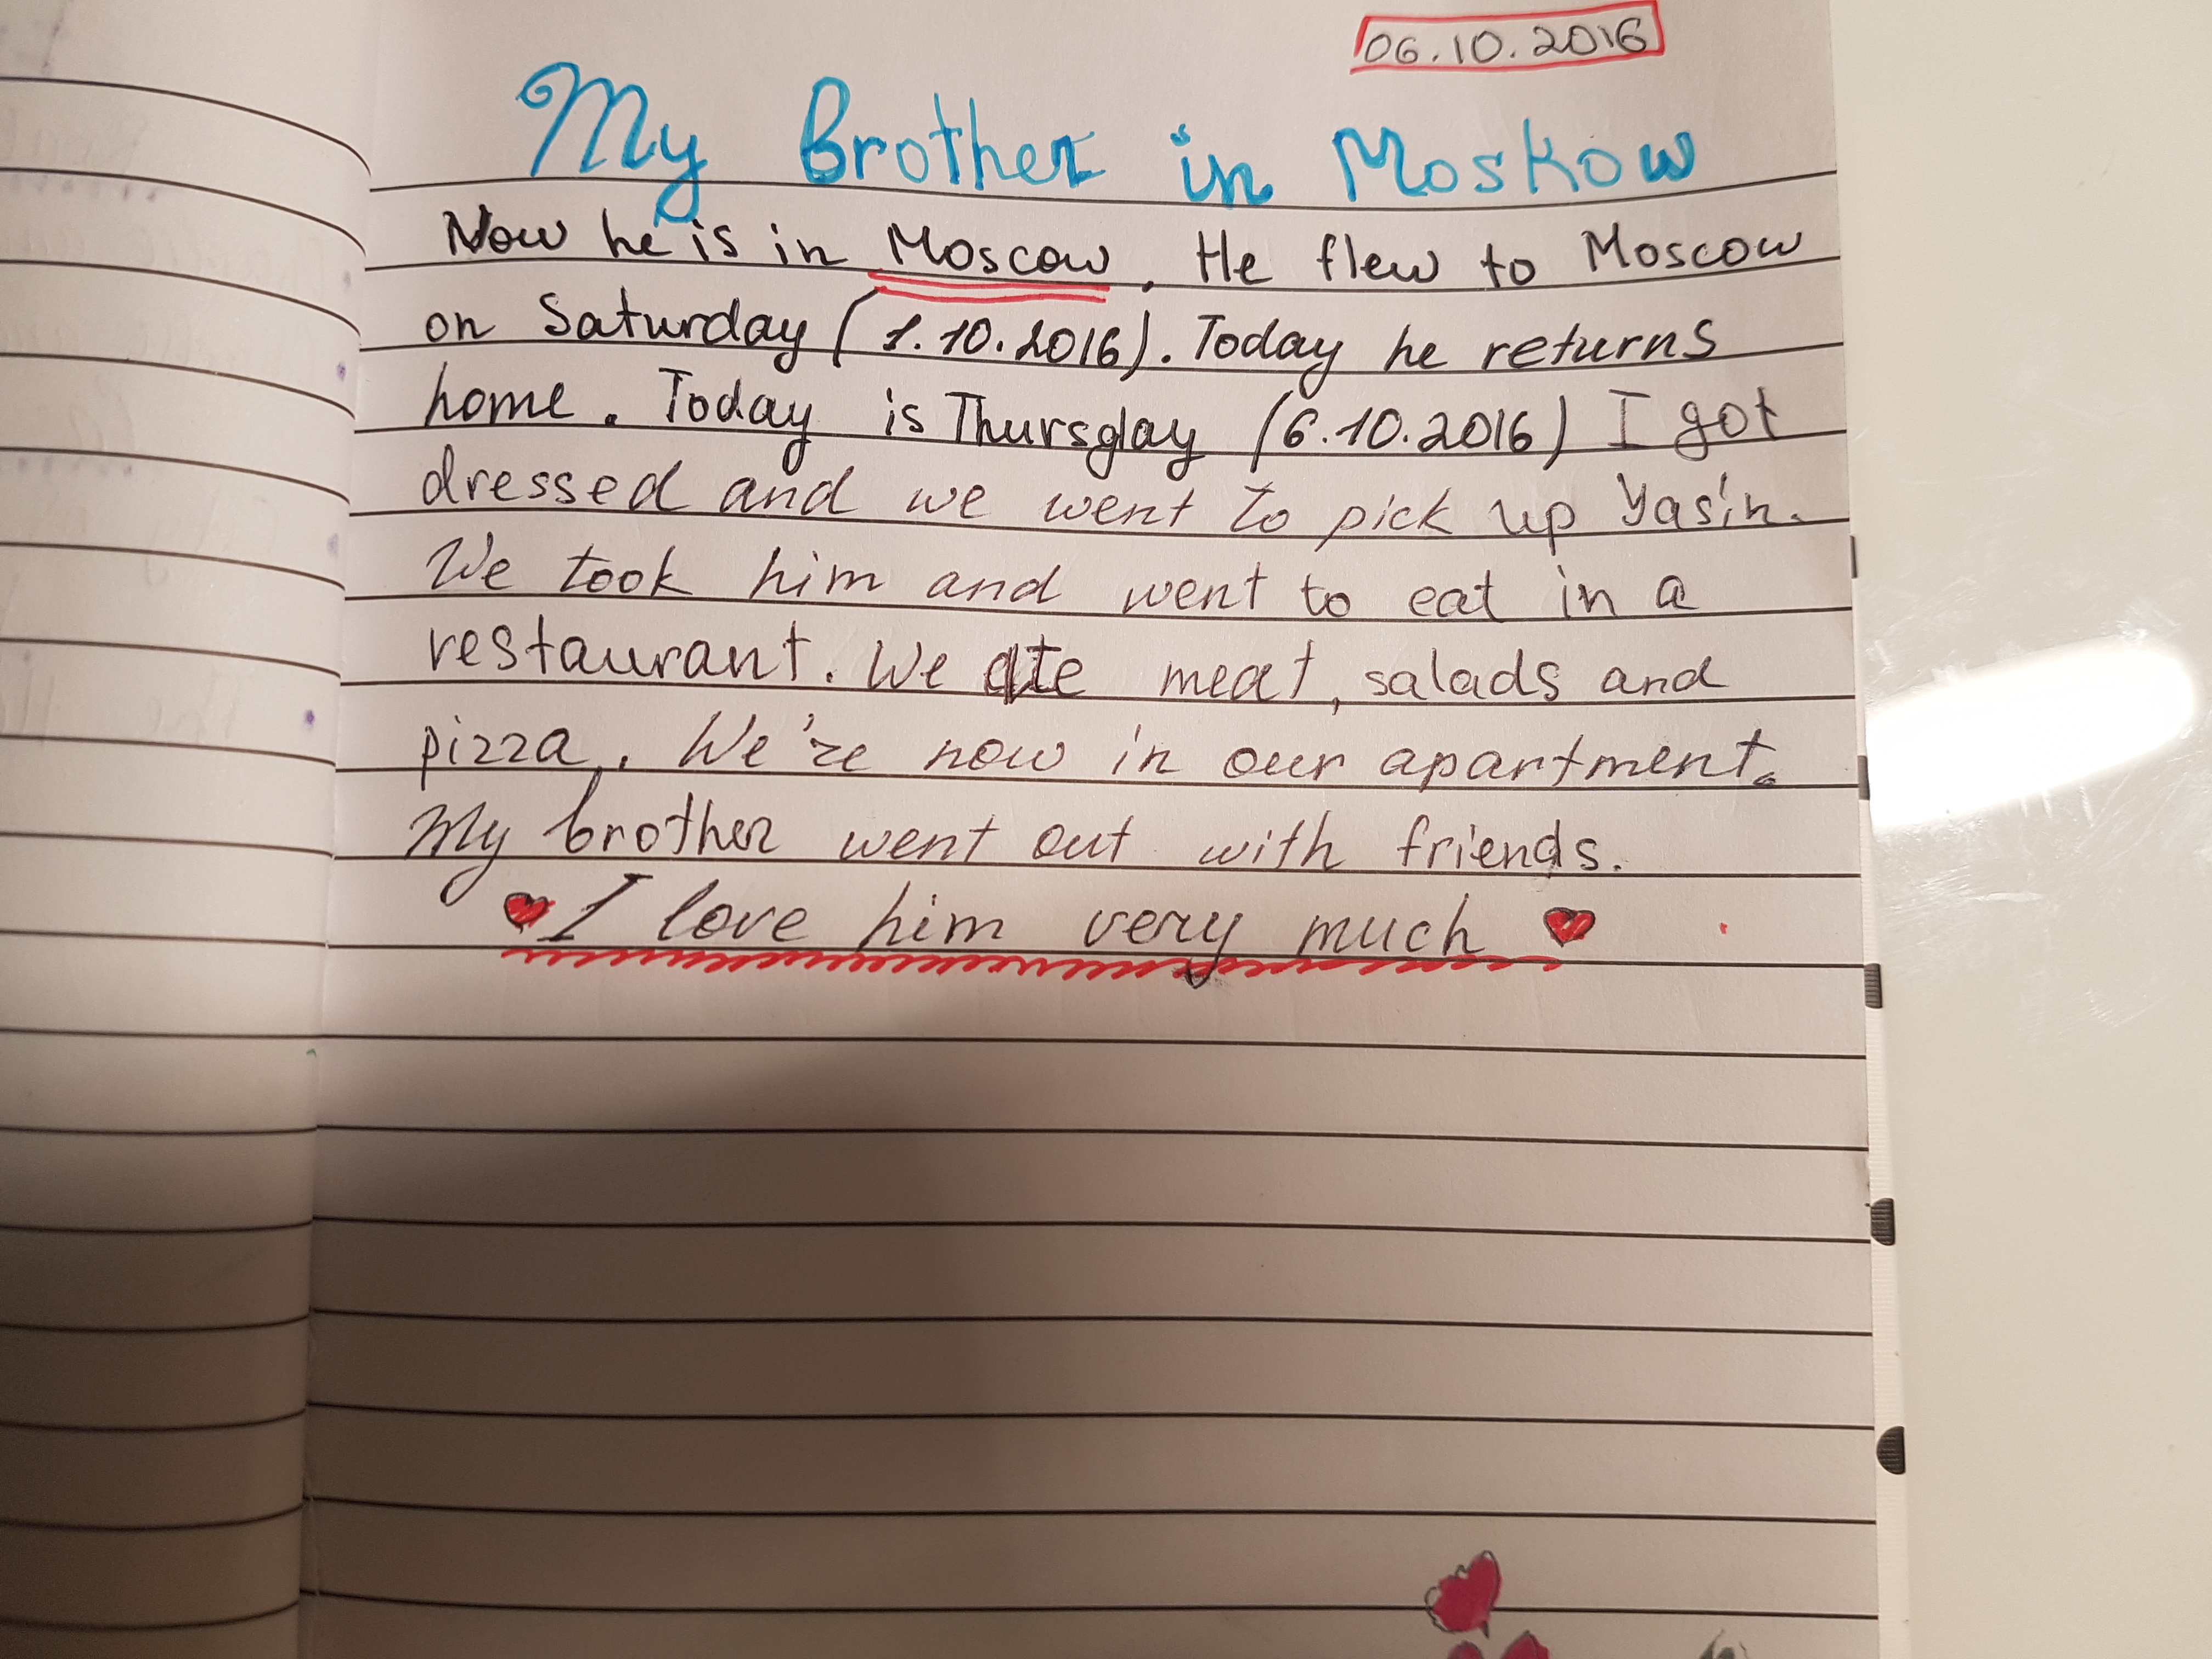 06.10.2016
My brother in Moskow
Now he is in Moscow. He flew to Moscow
on Saturday (1.10.2016). Today he returns
home. Today is Thursday (6.10.2016) I got
dressed and we went to pick up Yasin.
We took him and went to eat in a
restaurant. We ate meat, salads and
pizza. We're now in our apartment.
My brother went out with friends.
I love him very much